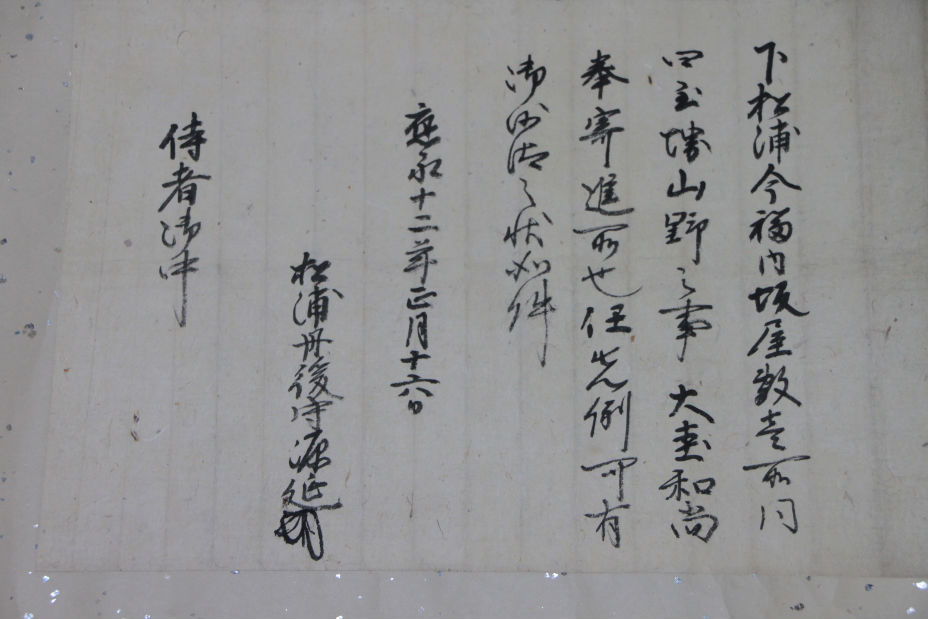 下松浦今福内坂屋敷壱所同
四至堺山野之事 大圭和尚
奉寄進所也任先例可有
御沙汰之状如件
應永十二年正月十六日
松浦丹後守源延
侍者御中